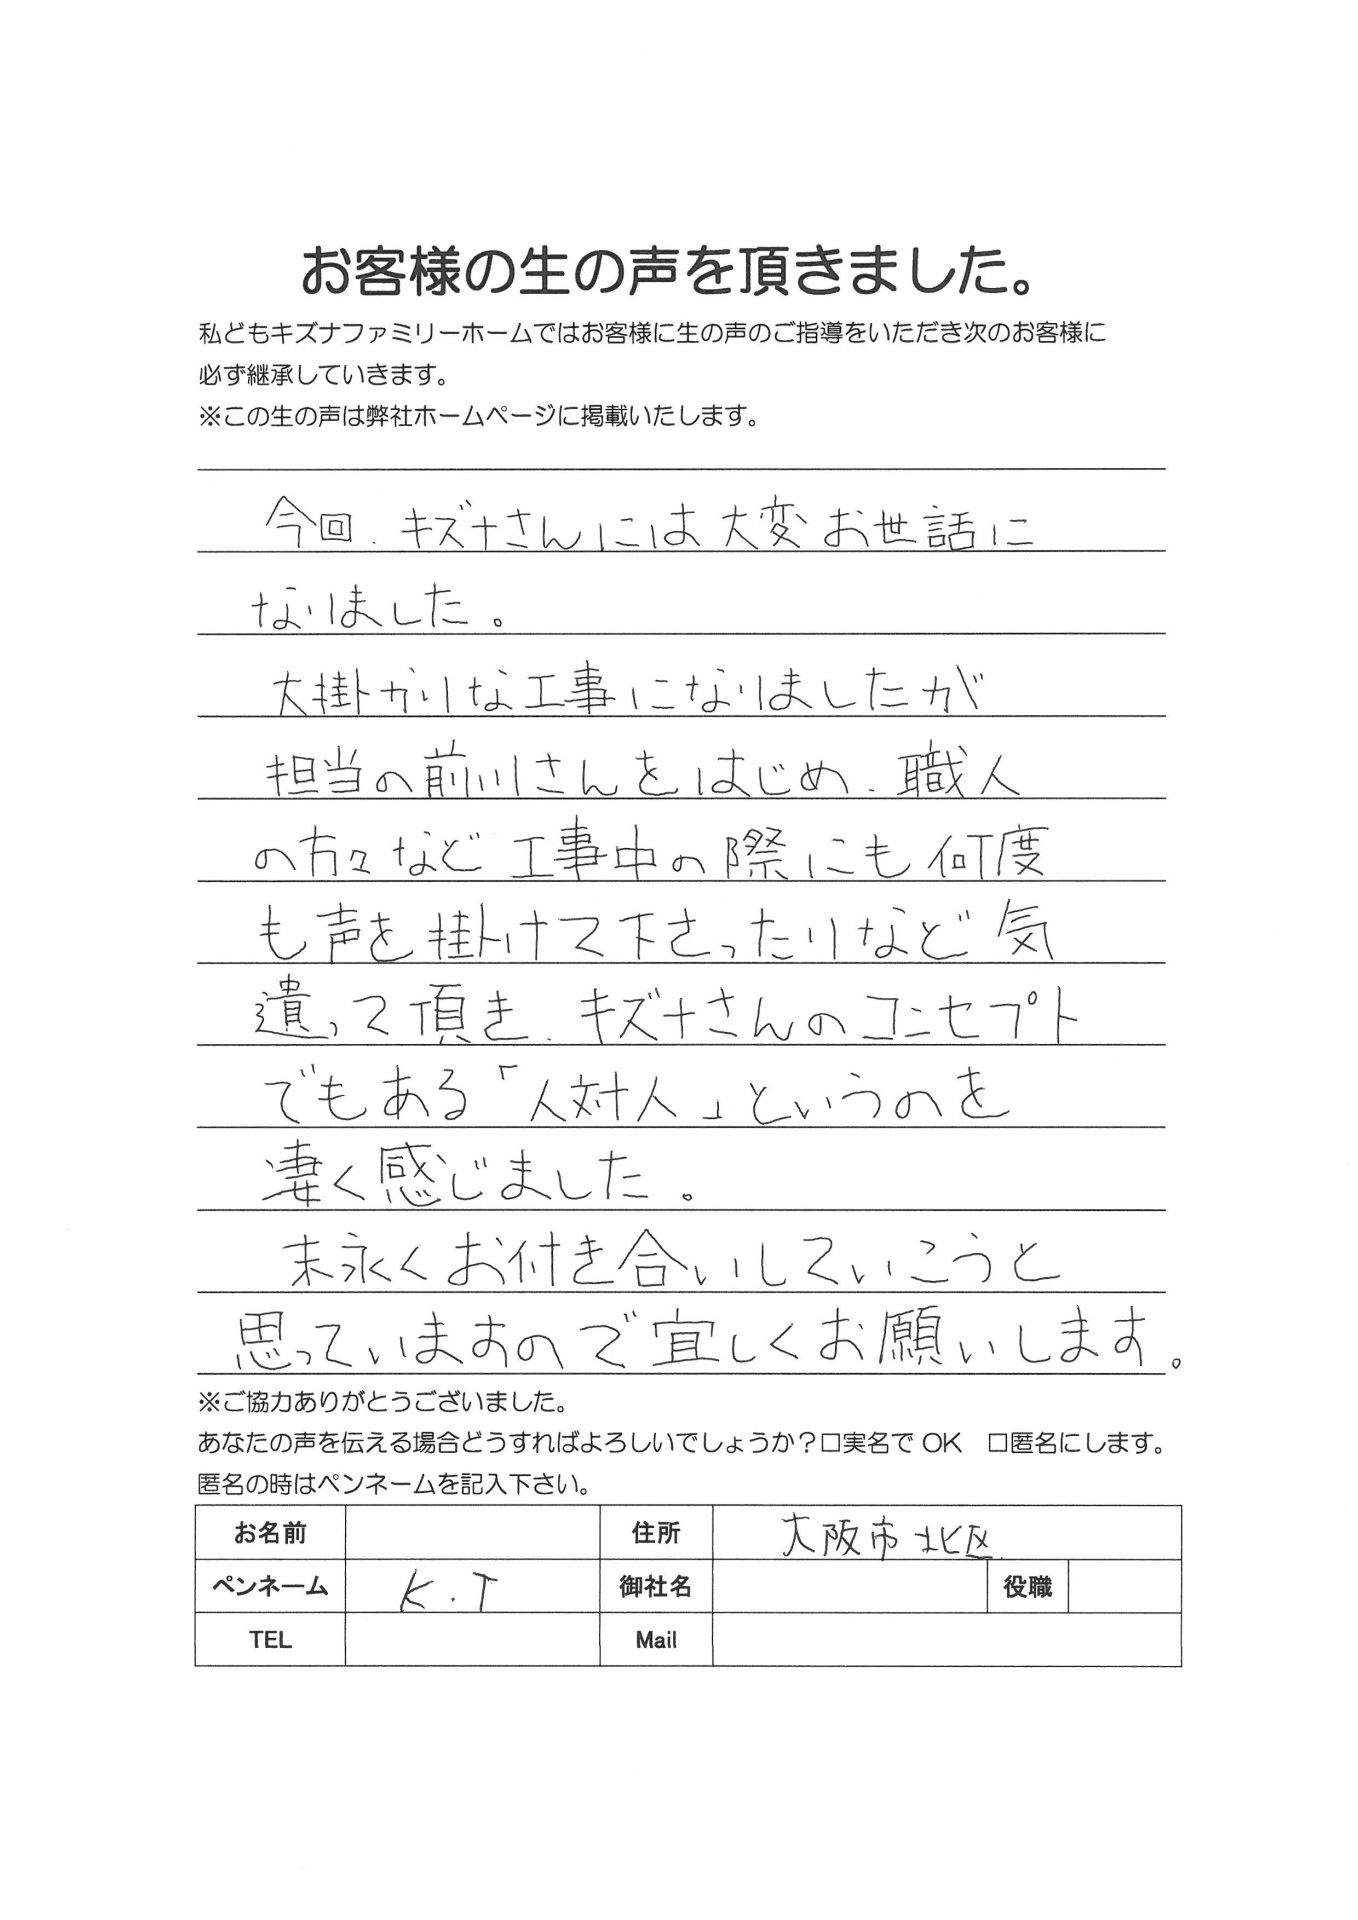 お客様の生の声を頂きました。
私どもキズナファミリーホームではお客様に生の声のご指導をいただき次のお客様に
必ず継承していきます。
※この生の声は弊社ホームページに掲載いたします。
今回、キズナさんには大変お世話に
なりました。
大掛かりな工事になりましたが
担当の前川さんをはじめ、職人
の方々など工事中の際にも何度
も声を掛けて下さったりなど気
遣って頂き、キズナさんのコンセプト
でもある「人対人」というのを
凄く感じました。
末永くお付き合いしていこうと
思っていますので宜しくお願いします。
※ご協力ありがとうございました。
あなたの声を伝える場合どうすればよろしいでしょうか？□実名でOK　□匿名にします。
匿名の時はペンネームを記入下さい。
お名前　住所　大阪市北区
ペンネーム　K.T　御社名　役職
TEL　Mail